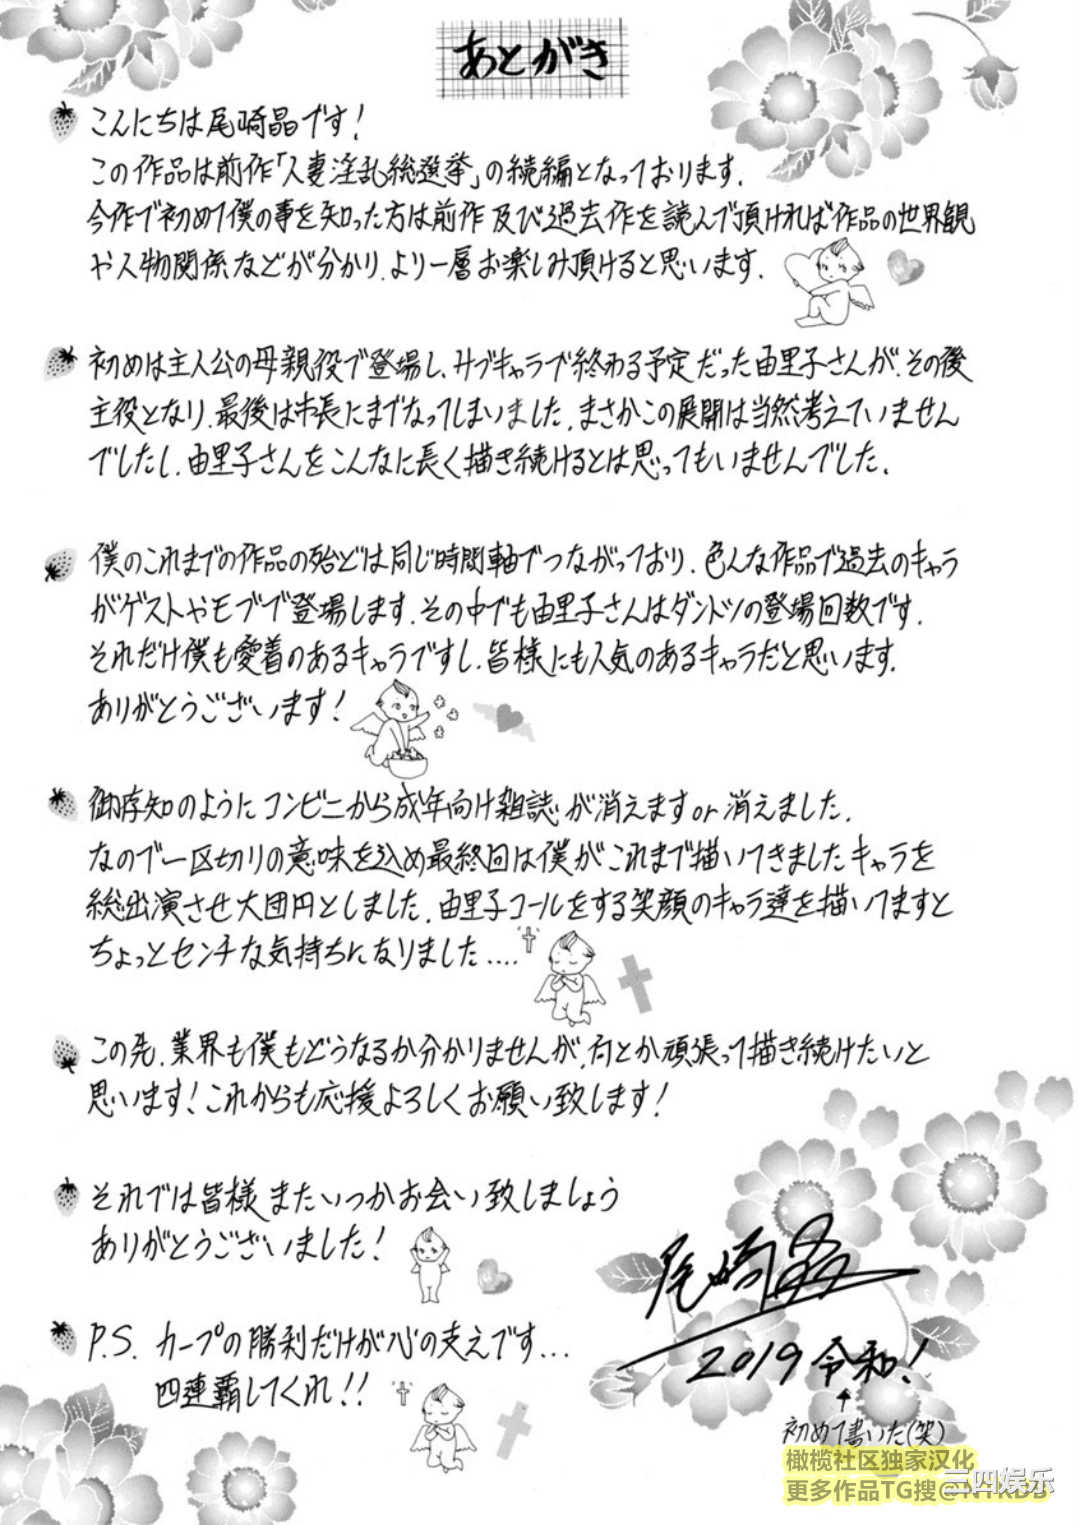 あとがき
こんにちは尾崎晶です!
この作品は前作「人妻淫乱総選挙」の続編となっております.
今作で初めて僕の事を知った方は前作及び過去作を読んで頂ければ作品の世界観
や人物関係などが分かり.より一層お楽しみ頂けると思います.
初めは主人公の母親役で登場し、サブキャラで終わる予定だった由里子さんが.その後
主役となり.最後は市長にまでなってしまいました.まさかこの展開は当然考えていません
でしたし.由里子さんをこんなに長く描き続けるとは思ってもいませんでした.
僕のこれまでの作品の殆どは同じ時間軸でつながっており.色んな作品で過去のキャラ
がゲストやモブで登場します.その中でも由里子さんはダントツの登場回数です.
それだけ僕も愛着のあるキャラですし.皆様にも人気のあるキャラだと思います.
ありがとうございます!
御存知のようにコンビニから成年向け雑誌が消えますor消えました.
なので一区切りの意味を込め最終回は僕がこれまで描いてきましたキャラを
総出演させ大団円としました.由里子コールをする笑顔のキャラ達を描いてますと
ちょっとセンチな気持ちになりました....
この先.業界も僕もどうなるか分かりませんが.何とか頑張って描き続けたいと
思います!これからも応援よろしくお願い致します!
それでは皆様またいつかお会い致しましょう
ありがとうございました!
P.S. カープの勝利だけが心の支えです...
四連覇してくれ!!
尾崎晶
2019 令和!
初めて書いた(笑)
橄榄社区独家汉化
更多作品TG搜@NTRDB
三四娱乐